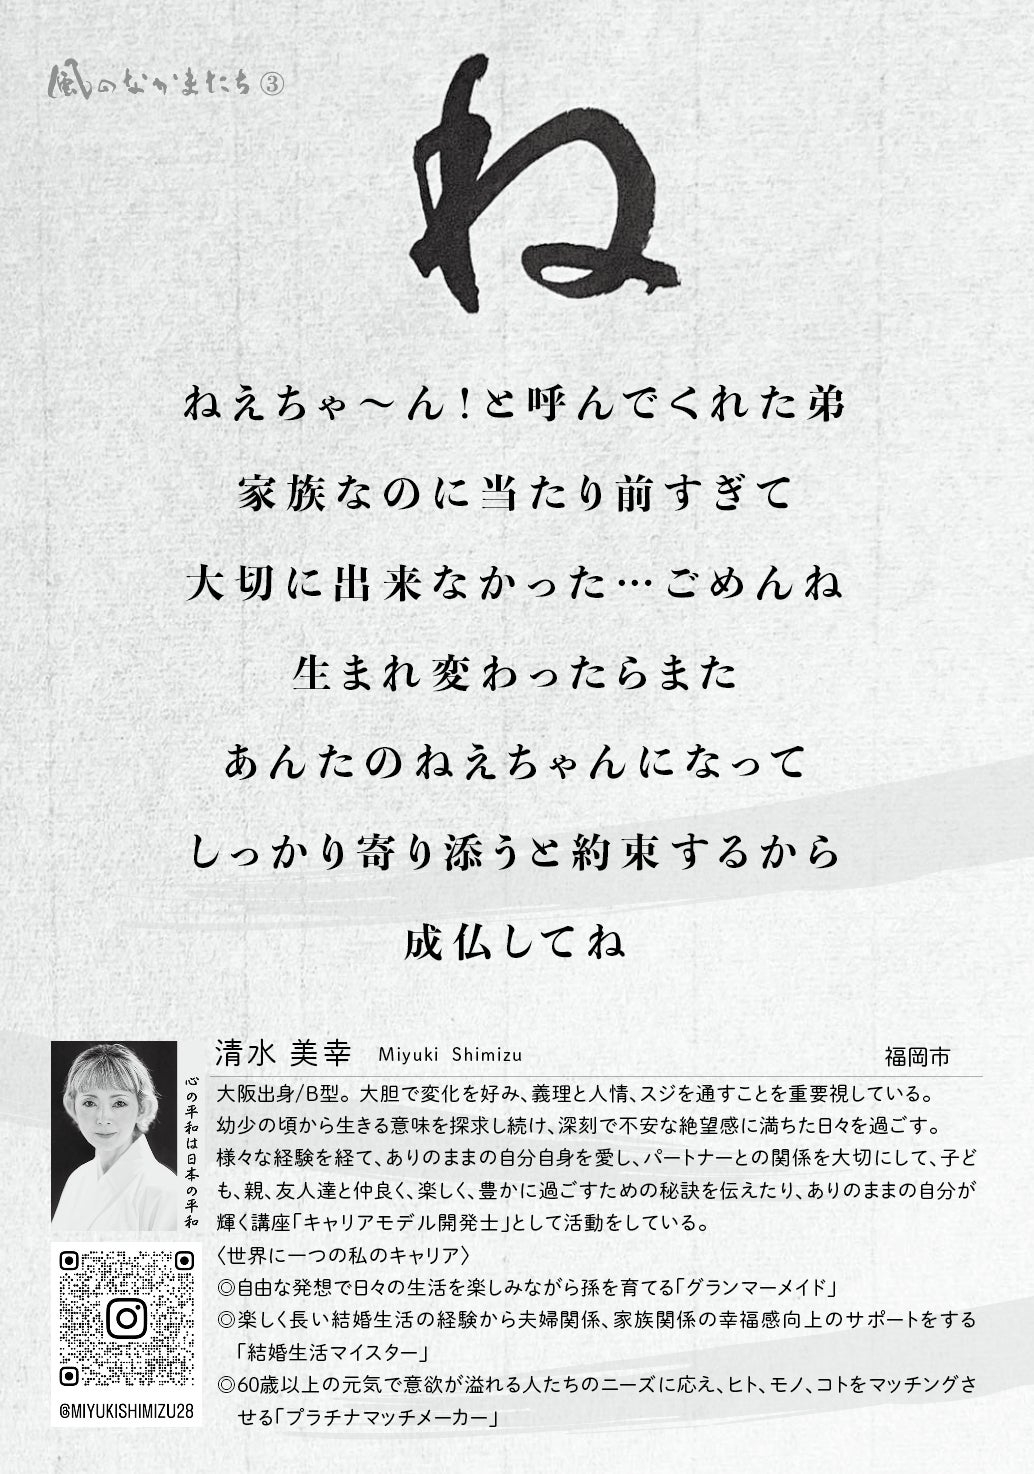 風のなかまたち③
ね
ねえちゃ〜ん!と呼んでくれた弟
家族なのに当たり前すぎて
大切に出来なかった…ごめんね
生まれ変わったらまた
あんたのねえちゃんになって
しっかり寄り添うと約束するから
成仏してね
清水 美幸 Miyuki Shimizu 福岡市
心の平和は日本の平和
大阪出身/B型。大胆で変化を好み、義理と人情、スジを通すことを重要視している。
幼少の頃から生きる意味を探求し続け、深刻で不安な絶望感に満ちた日々を過ごす。
様々な経験を経て、ありのままの自分自身を愛し、パートナーとの関係を大切にして、子ど
も、親、友人達と仲良く、楽しく、豊かに過ごすための秘訣を伝えたり、ありのままの自分が
輝く講座「キャリアモデル開発士」として活動をしている。
〈世界に一つの私のキャリア〉
◎自由な発想で日々の生活を楽しみながら孫を育てる「グランマーメイド」
◎楽しく長い結婚生活の経験から夫婦関係、家族関係の幸福感向上のサポートをする
「結婚生活マイスター」
◎60歳以上の元気で意欲が溢れる人たちのニーズに応え、ヒト、モノ、コトをマッチングさ
せる「プラチナマッチメーカー」
@MIYUKISHIMIZU28